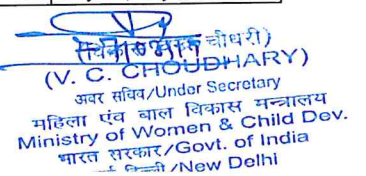 चौधरी)
(V. C. CHOUDHARY)
अवर सचिव/Under Secretary
महिला एंव बाल विकास मन्त्रालय
Ministry of Women & Child Dev.
भारत सरकार/Govt. of India
दिल्ली/New Delhi